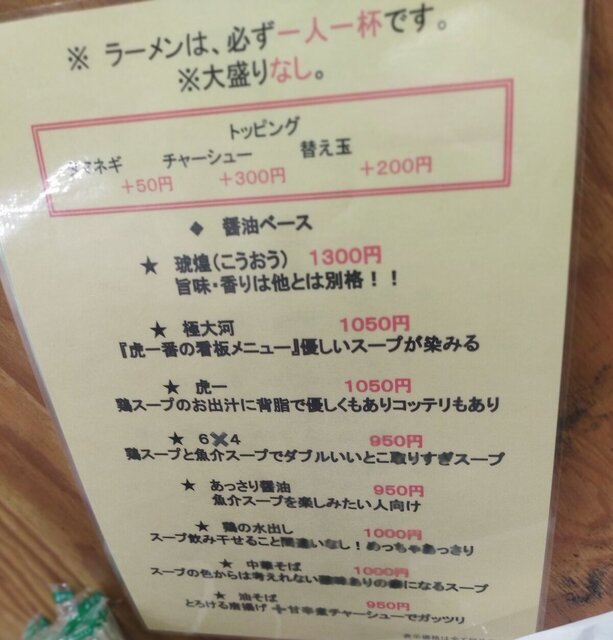 ※ ラーメンは、必ず一人一杯です。
※大盛りなし。
トッピング
タマネギ チャーシュー 替え玉
+50円 +300円 +200円
◆ 醤油ベース
★ 琥煌(こうおう) 1300円
旨味・香りは他とは別格!!
★ 極大河 1050円
『虎一番の看板メニュー』優しいスープが染みる
★ 虎一 1050円
鶏スープのお出汁に背脂で優しくもありコッテリもあり
★ 6✖4 950円
鶏スープと魚介スープでダブルいいとこ取りすぎスープ
★ あっさり醤油 950円
魚介スープを楽しみたい人向け
★ 鶏の水出し 1000円
スープ飲み干せること間違いなし!めっちゃあっさり
★ 中華そば 1000円
スープの色からは考えれない ありの になるスープ
★ 油そば 950円
とろける唐揚げ +甘辛煮チャーシューでガッツリ